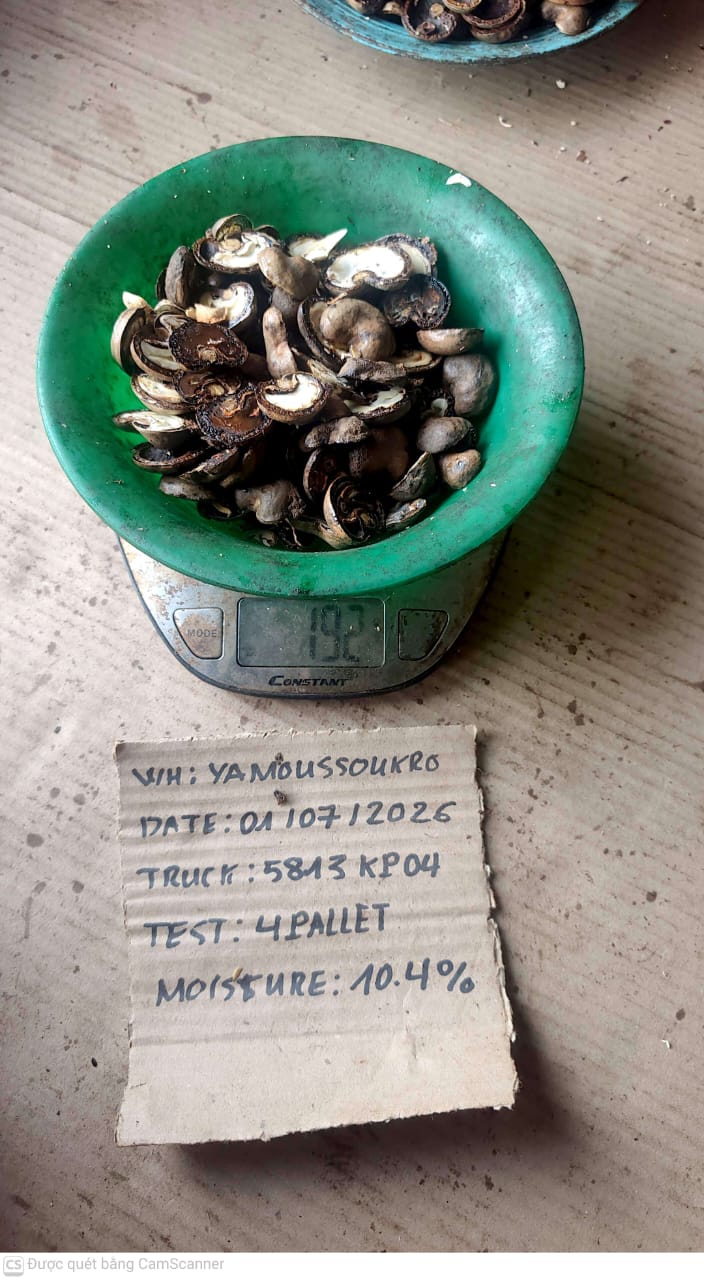 MODE
192
CONSTANT
WH: YAMOUSSOUKRO
DATE: 01/07/2026
TRUCK: 5813 KP04
TEST: 4PALLET
MOISTURE: 10.4%
CS Được quét bằng CamScanner